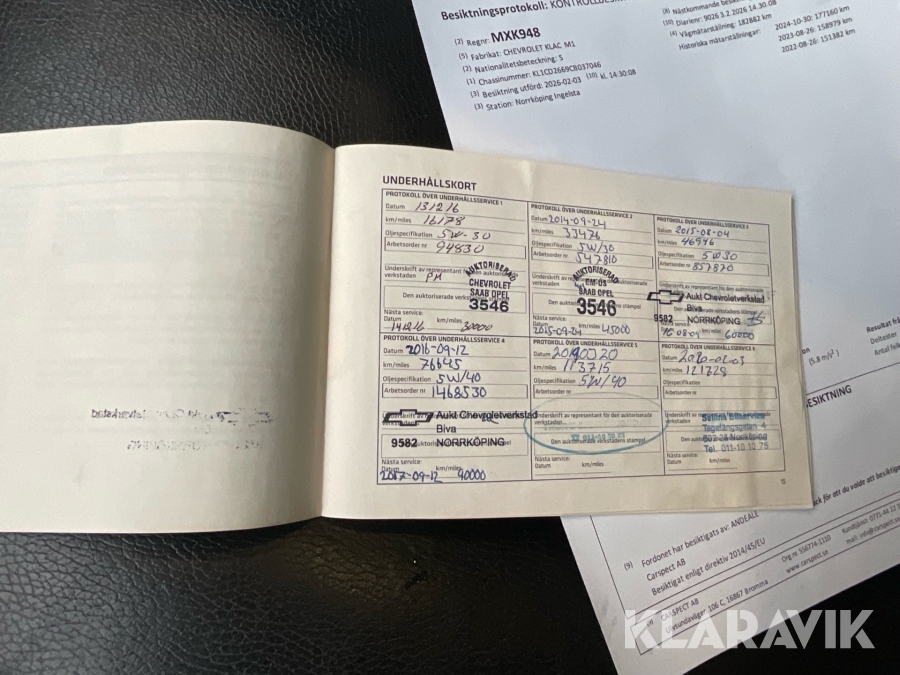 Besiktningsprotokoll: KONTROLLBESIK
(2) Regnr: MXK948
(5) Fabrikat: CHEVROLET KLAC, M1
(2) Nationalitetsbeteckning: S
(1) Chassinummer: KL1CD2669CB037046
(3) Besiktning utförd: 2026-02-03 (10) kl. 14:30:08
(3) Station: Norrköping Ingelsta
(8) Nästkommande besiktning
(10) Diarienr: 9026 3.2.2026 14.30.08
(4) Vägmätarställning: 182882 km
Historiska mätarställningar:
2024-10-30: 177160 km
2023-08-26: 158979 km
2022-08-26: 151382 km
UNDERHÅLLSKORT
PROTOKOLL ÖVER UNDERHÅLLSSERVICE 1
Datum 131216
km/miles 16178
Oljespecifikation 5W-30
Arbetsorder nr 94830
Underskrift av representant för den auktoriserade
verkstaden PM
Den auktoriserade verkstadens
AUKTORISERAD
CHEVROLET
SAAB OPEL
3546
Nästa service:
Datum km/miles
141216 30000
PROTOKOLL ÖVER UNDERHÅLLSSERVICE 2
Datum 2014-09-24
km/miles 33476
Oljespecifikation 5W/30
Arbetsorder nr 547810
AUKTORISERAD
SAAB OPEL
3546
Nästa service:
Datum km/miles
2015-09-24 45000
PROTOKOLL ÖVER UNDERHÅLLSSERVICE 3
Datum 2015-08-04
km/miles 46946
Oljespecifikation 5W30
Arbetsorder nr 857870
Aukt Chevroletverkstad
Biva
9582 NORRKÖPING
Nästa service:
Datum km/miles
16-08-04 60000
PROTOKOLL ÖVER UNDERHÅLLSSERVICE 4
Datum 2016-09-12
km/miles 76645
Oljespecifikation 5W/40
Arbetsorder nr 1468530
Aukt Chevroletverkstad
Biva
9582 NORRKÖPING
Nästa service:
Datum km/miles
2017-09-12 90000
PROTOKOLL ÖVER UNDERHÅLLSSERVICE 5
Datum 20190520
km/miles 113715
Oljespecifikation 5W/40
Arbetsorder nr
Underskrift av representant för den auktoriserade
verkstaden
Den auktoriserade verkstadens stämpel
Nästa service:
Datum km/miles
PROTOKOLL ÖVER UNDERHÅLLSSERVICE 6
Datum 2020-02-03
km/miles 121728
Oljespecifikation
Arbetsorder nr
Bilservice
Tegelängsgatan 4
602 28 Norrköping
Tel. 011-10 10 75
Nästa service:
Datum km/miles
15
(5.8 m/s²)
Resultat frå
Deltester
Antal
ESIKTNING
(9) Fordonet har besiktigats av: ANDEALL
Carspect AB
Besiktigat enligt direktiv 2014/45/EU
CARSPECT AB
Ulvsundavägen 106 C, 16867 Bromma
Org nr 556774-1110
www.carspect.se
KLARAVIK